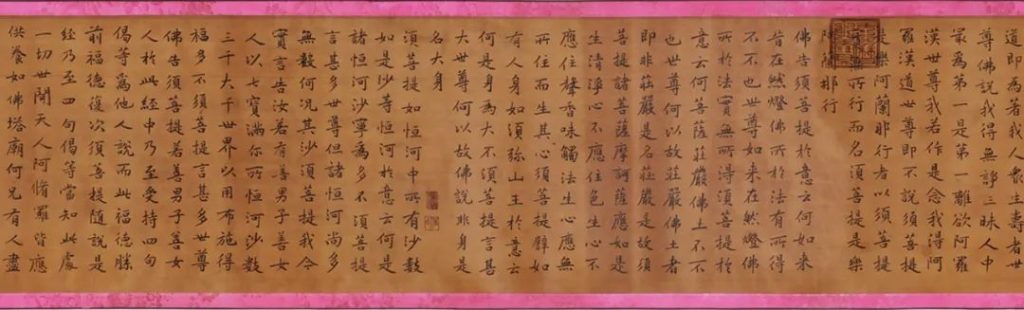 道即為著我人眾生壽者世
尊佛說我得無諍三昧人中
最為第一是第一離欲阿羅
漢世尊我若作是念我得阿
羅漢道世尊即不說須菩提
是樂阿蘭那行者以須菩提
所行而名須菩提是樂
阿蘭那行
佛告須菩提於意云何如來
昔在然燈佛所於法有所得
不不也世尊如來在然燈佛
所於法實無所得須菩提於
意云何菩薩莊嚴佛土不不
也世尊何以故莊嚴佛土者
即非莊嚴是名莊嚴是故須
菩提諸菩薩摩訶薩應如是
生清淨心不應住色生心不
應住聲香味觸法生心應無
所住而生其心須菩提譬如
有人身如須彌山王於意云
何是身為大不須菩提言甚
大世尊何以故佛說非身是
名大身
須菩提如恒河中所有沙數
如是沙等恒河於意云何是
諸恒河沙寧為多不須菩提
言甚多世尊但諸恒河尚多
無數何況其沙須菩提我今
實言告汝若有善男子善女
人以七寶滿尒所恒河沙數
三千大千世界以用布施得
福多不須菩提言甚多世尊
佛告須菩提若善男子善女
人於此經中乃至受持四句
偈等為他人說而此福德勝
前福德復次須菩提隨說是
經乃至四句偈等當知此處
一切世間天人阿脩羅皆應
供養如佛塔廟何況有人盡